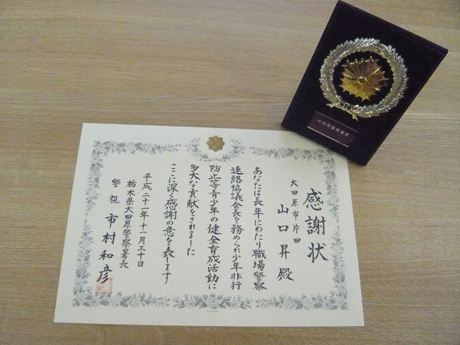 感謝状
大田原市片田
山口昇殿
あなたは長年にわたり職場警察
連絡協議会長を務められ少年非行
防止等青少年の健全育成活動に
多大な貢献をされました
ここに深く感謝の意を表します
平成二十一年十一月三十日
栃木県大田原警察署長
警視 市村和彦